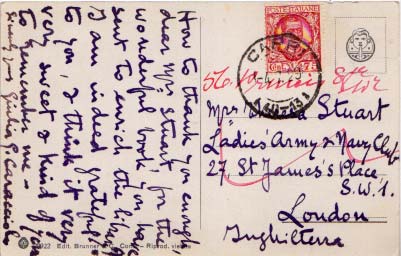 How to thank you enough,
dear Mrs Stuart, for the
wonderful book you have
sent to enrich the library
I am indeed grateful
to you, & think it very
very sweet & kind of you
to remember me -
Giulia G. Caracciolo
POSTE ITALIANE
CAPRI
Mrs Stuart
Ladies' Army & Navy Club
27 St James's Place
S.W.1.
London
Inghilterra
Edit. Brunner & C. Como - Riprod. vietata